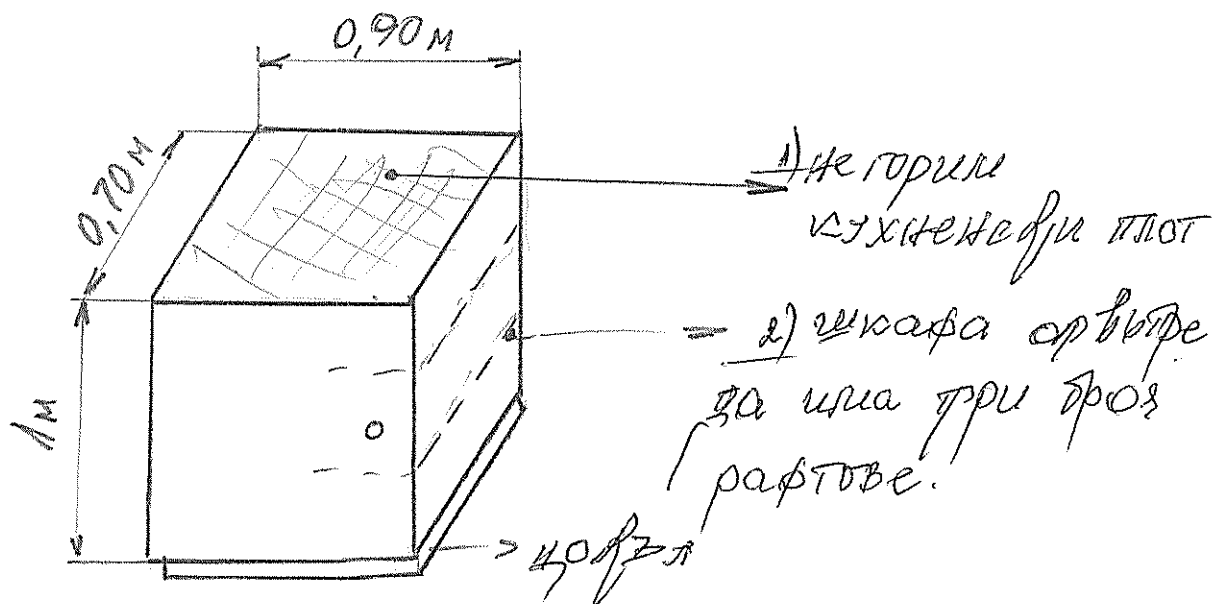 0,90 м
0,70 м
1 м
1) не горим
кухненски плот
2) шкафа отвътре
да има три броя
рафтове.
цокъл